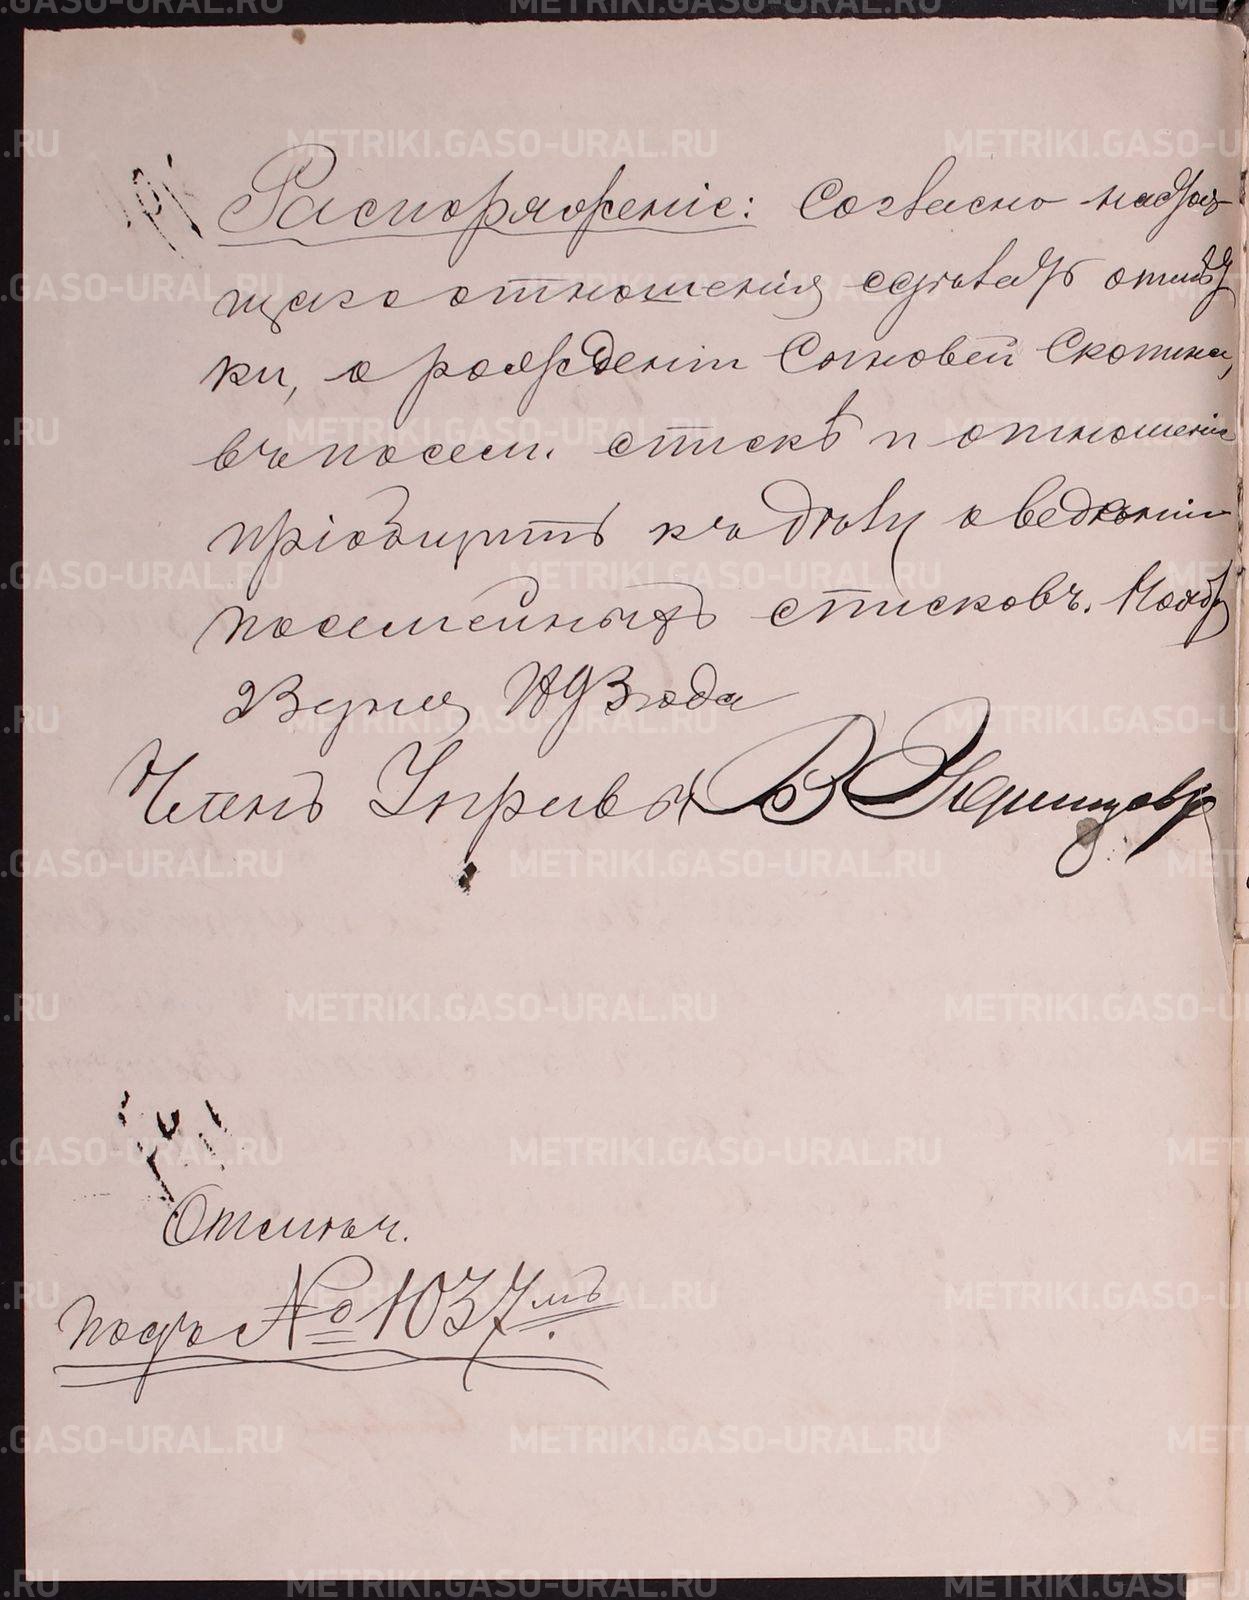 Распоряженіе: Согласно настоя-
щаго отношенія сдѣлать отмѣт
ки, о рожденіи Сыновей Скотина,
въ посем. спискѣ и отношеніе
пріобщить къ дѣлу о веденіи
посемейныхъ списковъ. Ноябр
23 дня год
Членъ Управы В
Отмѣч.
подъ № 1037мъ.